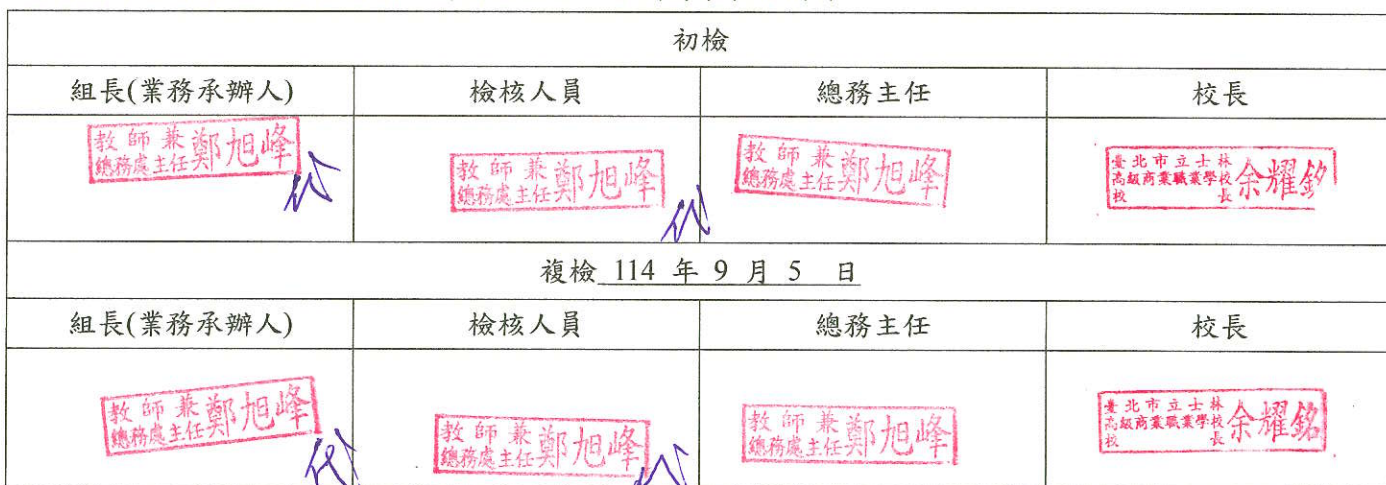 初檢
組長(業務承辦人) 檢核人員 總務主任 校長
教師兼總務處主任鄭旭峰 代 教師兼總務處主任鄭旭峰 代 教師兼總務處主任鄭旭峰 臺北市立士林高級商業職業學校校長余耀銘
複檢 114 年 9 月 5 日
組長(業務承辦人) 檢核人員 總務主任 校長
教師兼總務處主任鄭旭峰 代 教師兼總務處主任鄭旭峰 代 教師兼總務處主任鄭旭峰 臺北市立士林高級商業職業學校校長余耀銘